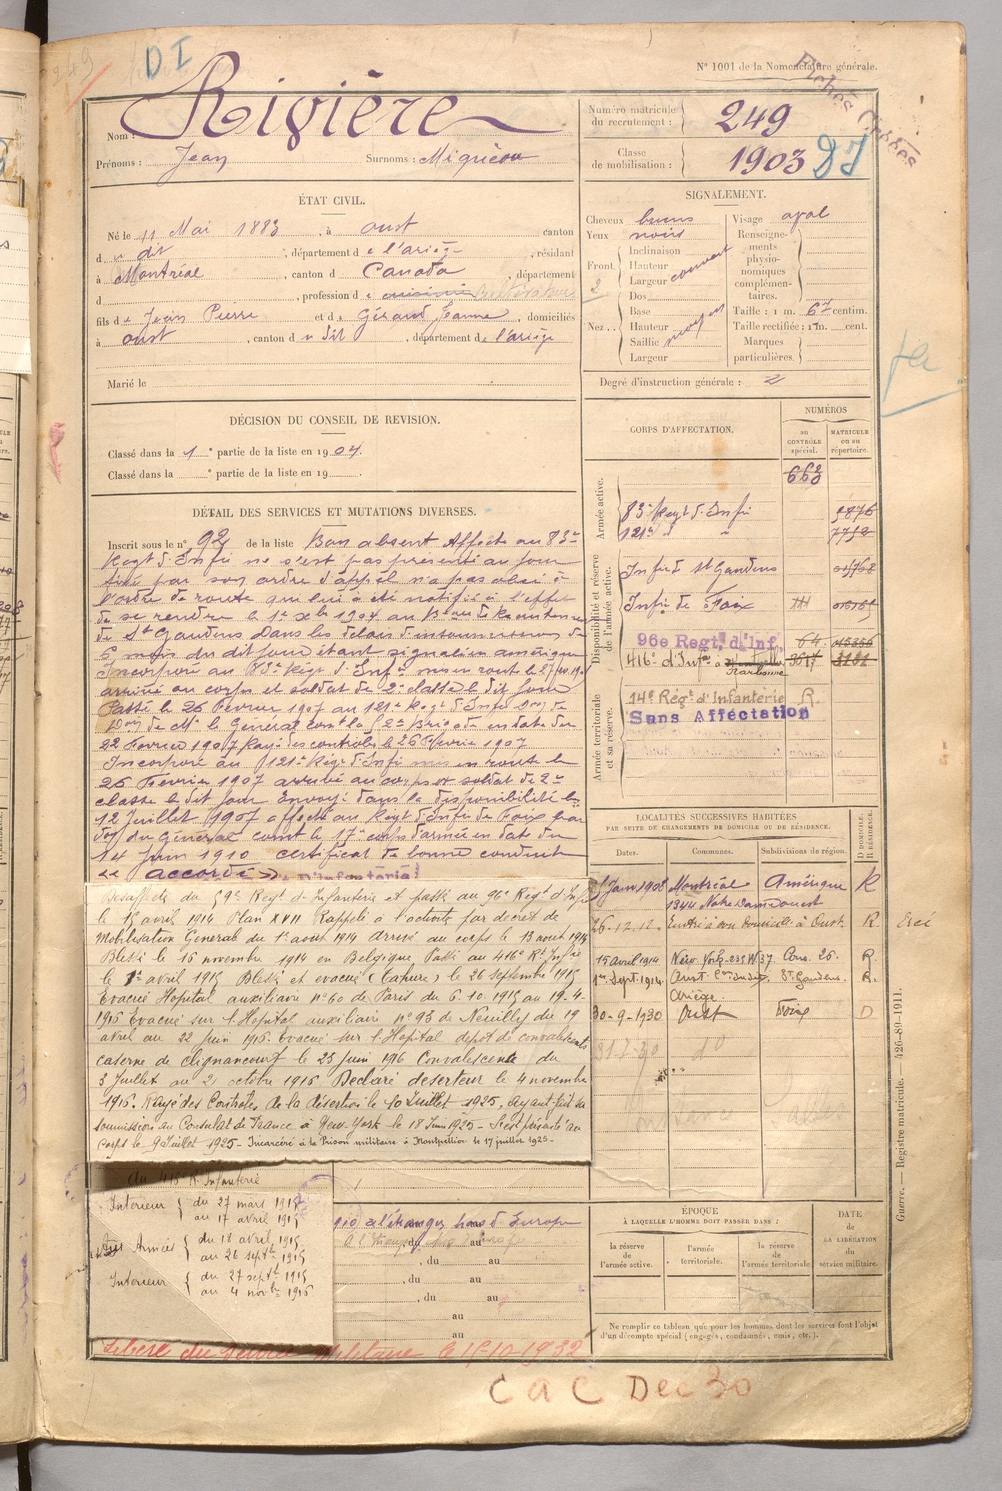 249
D I
N° 1001 de la Nomenclature générale.
Nom : Rivière
Prénoms : Jean Surnoms :
Numéro matricule du recrutement : 249
Classe de mobilisation : 1903
ÉTAT CIVIL.
Né le 11 Mai 1883, à oust canton
d u dit, département de l'ariège, résidant
à Montréal, canton d Canada, département
d , profession de Cultivateur
fils de Jean Pierre et de Géraud Jeanne, domiciliés
à oust, canton du dit, département de l'ariège
Marié le
SIGNALEMENT.
Cheveux bruns
Yeux noirs
Front. Inclinaison
Hauteur
Largeur couvert
Nez... Dos
Base
Hauteur moyen
Saillie
Largeur
Visage oval
Renseignements physionomiques complémentaires.
Taille : 1 m. 67 centim.
Taille rectifiée : 1 m. cent.
Marques particulières.
Degré d'instruction générale : 2
DÉCISION DU CONSEIL DE REVISION.
Classé dans la 1e partie de la liste en 1904.
Classé dans la ° partie de la liste en 19 .
DÉTAIL DES SERVICES ET MUTATIONS DIVERSES.
Inscrit sous le n° 92 de la liste Bon absent Affecté au 83e
Regt d'Infie ne s'est pas présenté au jour
fixé par son ordre d'appel n'a pas obéi à
l'ordre de route qui lui a été notifié à l'effet
de se rendre le 1er Xbre 1904 au Beau de Recrutement
de St Gaudens Dans les délais d'insoumission de
6 mois du dit jour étant signalé en amérique
Incorporé au 83e Régt d'Infie mis en route le 27
arrivé au corps et soldat de 2e classe le dit jour
Passé le 26 Février 1907 au 121e Regt d'Infie Don de
Mr le Général Comt la Brigade en date du
22 Février 1907 Rayé des controles le 26 Février 1907
Incorporé au 121e Régt d'Infie mis en route le
26 Février 1907 arrivé au corps et soldat de 2e
classe le dit jour Envoyé dans la disponibilité le
12 Juillet 1907 affecté au Regt d'Infie de Foix par
don du Général comt le 17e corps d'armée en date du
14 Juin 1910 certificat de bonne conduite
"accordé"
Désaffecté du 59e Regt d'Infanterie et passé au 96e Regt d'Infie
le 15 avril 1914 Plan XVII Rappelé à l'activité par décret de
Mobilisation Générale du 1er aout 1914 Arrivé au corps le 13 aout 1914
Blessé le 16 novembre 1914 en Belgique Passé au 416e Rt Infie
le 1er avril 1915 Blessé et évacué (Tahure) le 26 septembre 1915
Evacué Hopital auxiliaire n° 60 de Paris du 6.10.1915 au 19.4.
1916 Evacué sur l'Hopital auxiliaire n° 93 de Neuilly du 19
avril au 22 Juin 1916. Evacué sur l'Hopital dépot de convalescents
caserne de clignancourt le 23 Juin 1916 Convalescence du
3 Juillet au 2 octobre 1916 Déclaré déserteur le 4 novembre
1916. Rayé des Controles de la désertion le 10 Juillet 1925, ayant fait sa
soumission au Consulat de France à New-York le 18 Juin 1925 - S'est présenté au
corps le 9 Juillet 1925 - Incarcéré à la Prison militaire à Montpellier le 17 juillet 1925 -
du 416 Rt Infanterie
Intérieur du 27 mars 1915
au 17 avril 1915
Aux Armées du 18 avril 1915
au 26 septre 1915
Intérieur du 27 septre 1915
au 4 novbre 1916
à l'étranger hors d'Europe
, du au
, du au
, du au
au
au
Libéré du service Militaire le 15-10-1932
CORPS D'AFFECTATION.
NUMÉROS
au CONTRÔLE spécial.
MATRICULE ou au répertoire.
Armée active.
662
83e Regt d'Infie
121e d° "
Disponibilité et réserve de l'armée active.
Infie de St Gaudens
Infie de Foix
96e Regt. d'Inf. 64
416e d'Infie à Narbonne
Armée territoriale et sa réserve.
14e Rég.t d'Infanterie R.
Sans Affectation
LOCALITÉS SUCCESSIVES HABITÉES
PAR SUITE DE CHANGEMENTS DE DOMICILE OU DE RÉSIDENCE.
Dates. Communes. Subdivisions de région. D DOMICILE. R RÉSIDENCE.
Janv 1908 Montréal Amérique R
1344 Notre Dame ouest
26.12.12. Rentré à son Domicile à Oust. R.
15 avril 1914 New-York. 239 W 37 Cons. 26. R.
1er Sept. 1914 Oust St Gaudens. R.
Ariège.
30-9-1930 Oust Foix D
31-7-30 d°
ÉPOQUE
À LAQUELLE L'HOMME DOIT PASSER DANS :
la réserve de l'armée active.
l'armée territoriale.
la réserve de l'armée territoriale
DATE de LA LIBÉRATION du service militaire.
Ne remplir ce tableau que pour les hommes dont les services font l'objet
d'un décompte spécial (engagés, condamnés, omis, etc.).
Guerre. — Registre matricule. — 426-89-1911.
C a C Dec 30